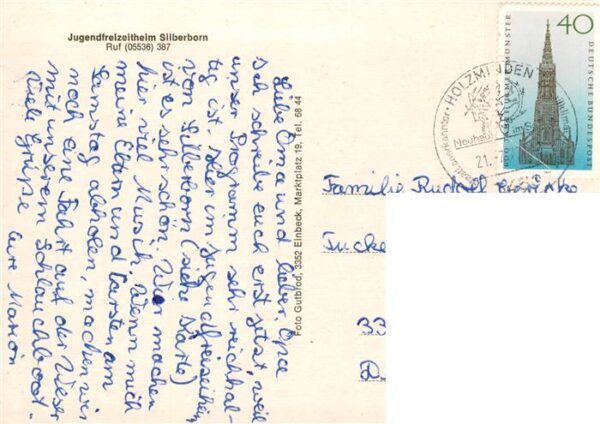 Jugendfreizeitheim Silberborn
Ruf (05536) 387
Liebe Oma und lieber Opa
Ich schreibe euch erst jetzt, weil
unser Programm sehr reichhal-
tig ist. Hier im Jugendfreizeitheim
von Silberborn (siehe Karte)
ist es sehr schön. Wir machen
hier viel Musik. Wenn mich
meine Eltern und Carsten am
Samstag abholen, machen wir
noch eine Fahrt auf der Weser
mit unserem Schlauchboot.
Viele Grüße eure Marion
Foto Gutbrod, 3352 Einbeck, Marktplatz 19, Tel. 68 44
40
DEUTSCHE BUNDESPOST
MÜNSTER
HOLZMINDEN
Neuhaus im
21.
Familie Rudolf